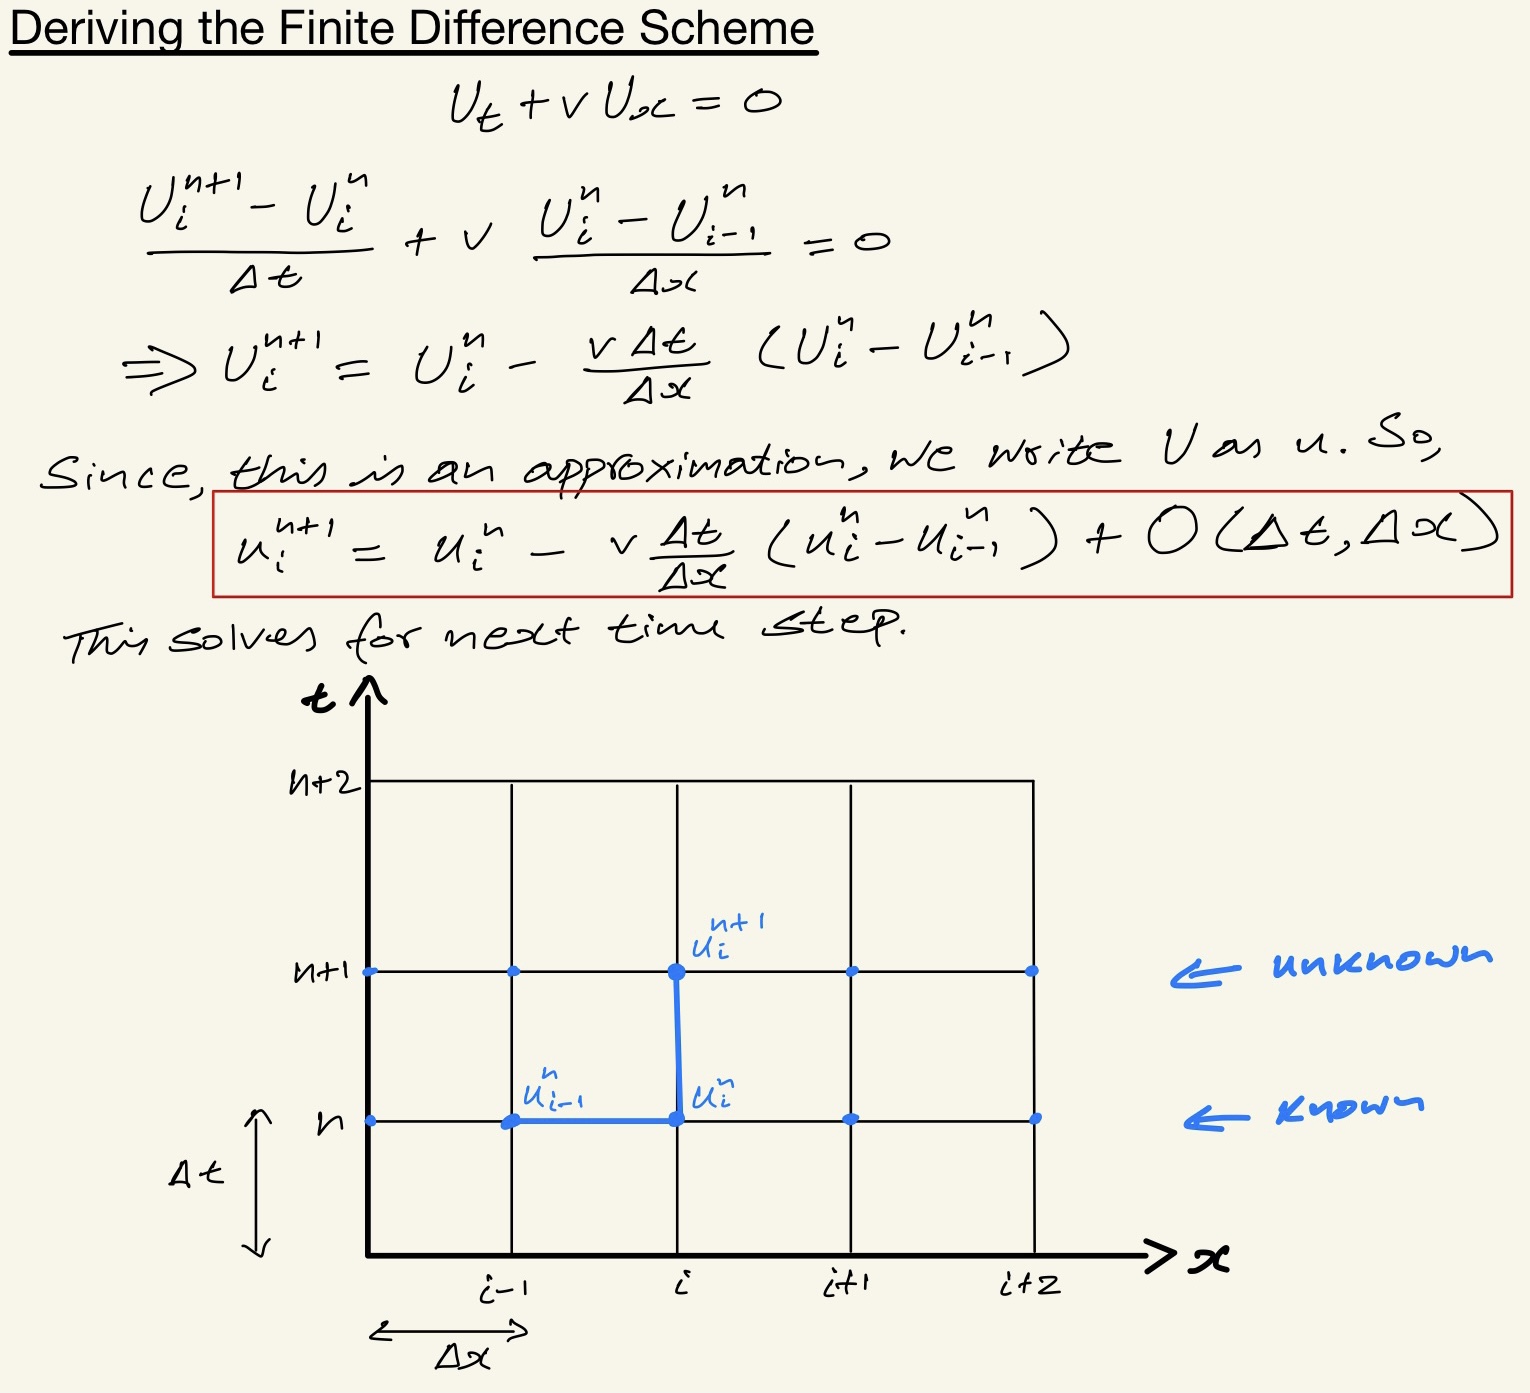 Deriving the Finite Difference Scheme
U_t + v U_x = 0
(U_i^{n+1} - U_i^n)/Δt + v (U_i^n - U_{i-1}^n)/Δx = 0
⇒ U_i^{n+1} = U_i^n - (vΔt/Δx) (U_i^n - U_{i-1}^n)
Since, this is an approximation, we write U as u. So,
u_i^{n+1} = u_i^n - v (Δt/Δx) (u_i^n - u_{i-1}^n) + O(Δt, Δx)
This solves for next time step.
t
n+2
u_i^{n+1}
n+1
← unknown
u_{i-1}^n
u_i^n
n
← known
Δt
x
i-1 i i+1 i+2
Δx